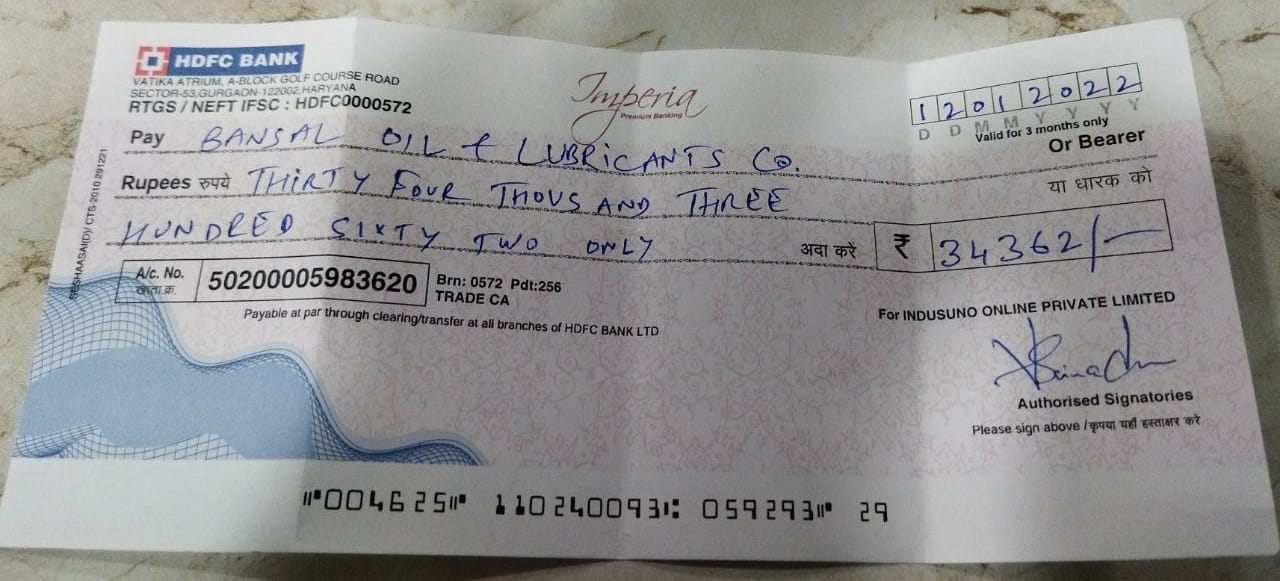 HDFC BANK
VATIKA ATRIUM, A-BLOCK GOLF COURSE ROAD
SECTOR-53,GURGAON-122002,HARYANA
RTGS / NEFT IFSC : HDFC0000572
Imperia
Premium Banking
12012022
D D M M Y Y Y Y
Valid for 3 months only
Pay BANSAL OIL & LUBRICANTS CO.
Or Bearer
या धारक को
Rupees रुपये THIRTY FOUR THOUSAND THREE
HUNDRED SIXTY TWO ONLY अदा करें ₹ 34362/-
A/c. No. 50200005983620 Brn: 0572 Pdt:256
खाता.क्र. TRADE CA
Payable at par through clearing/transfer at all branches of HDFC BANK LTD
For INDUSUNO ONLINE PRIVATE LIMITED
Authorised Signatories
Please sign above / कृपया यहाँ हस्ताक्षर करें
SESHAASAI(D)/ CTS-2010 291221
⑈004625⑈ 110240093⑆ 059293⑈ 29